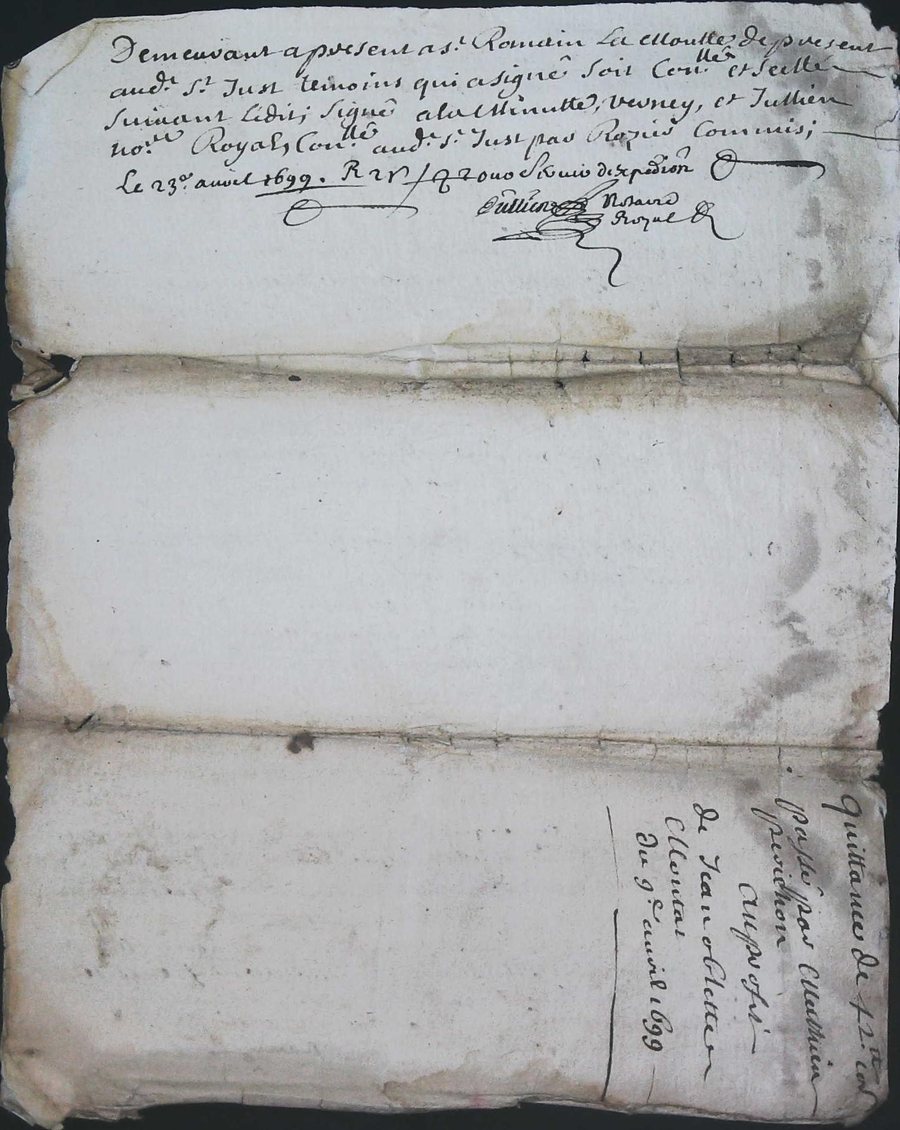 Demeurant a present a St Romain La Moutte de present
aud.t St Just temoins qui a signé soit Con.llé et scellé
suivant Ledit; signé a la Minutte, Verney, et Jullien
no.re Royal, Con.llé aud.t St Just par Rozier Commis;
Le 23.e auril 1699. R
Jullien Notaire
Royal
Quittance de 42 tt
passé par Mathieu
perichon
au profit
de Jean
Montat
du 9.e auril 1699